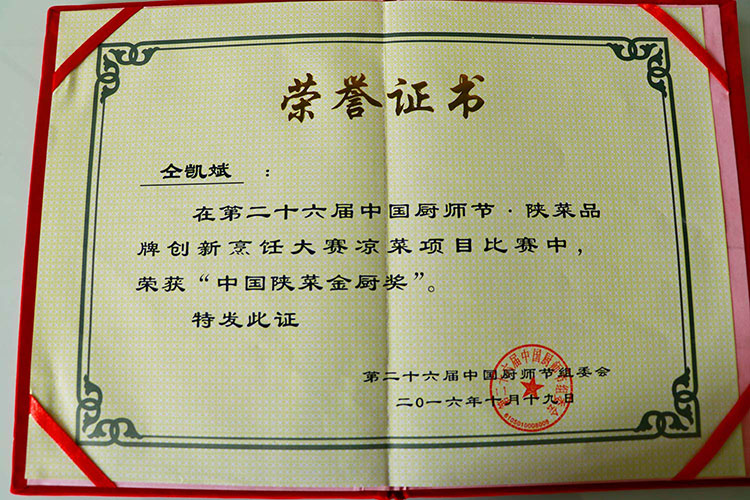 荣誉证书
仝凯斌 :
在第二十六届中国厨师节·陕菜品
牌创新烹饪大赛凉菜项目比赛中,
荣获“中国陕菜金厨奖”。
特发此证
第二十六届中国厨师节组委会
二0一六年十月十九日
第二十六届中国厨师节组委会
6105010008009